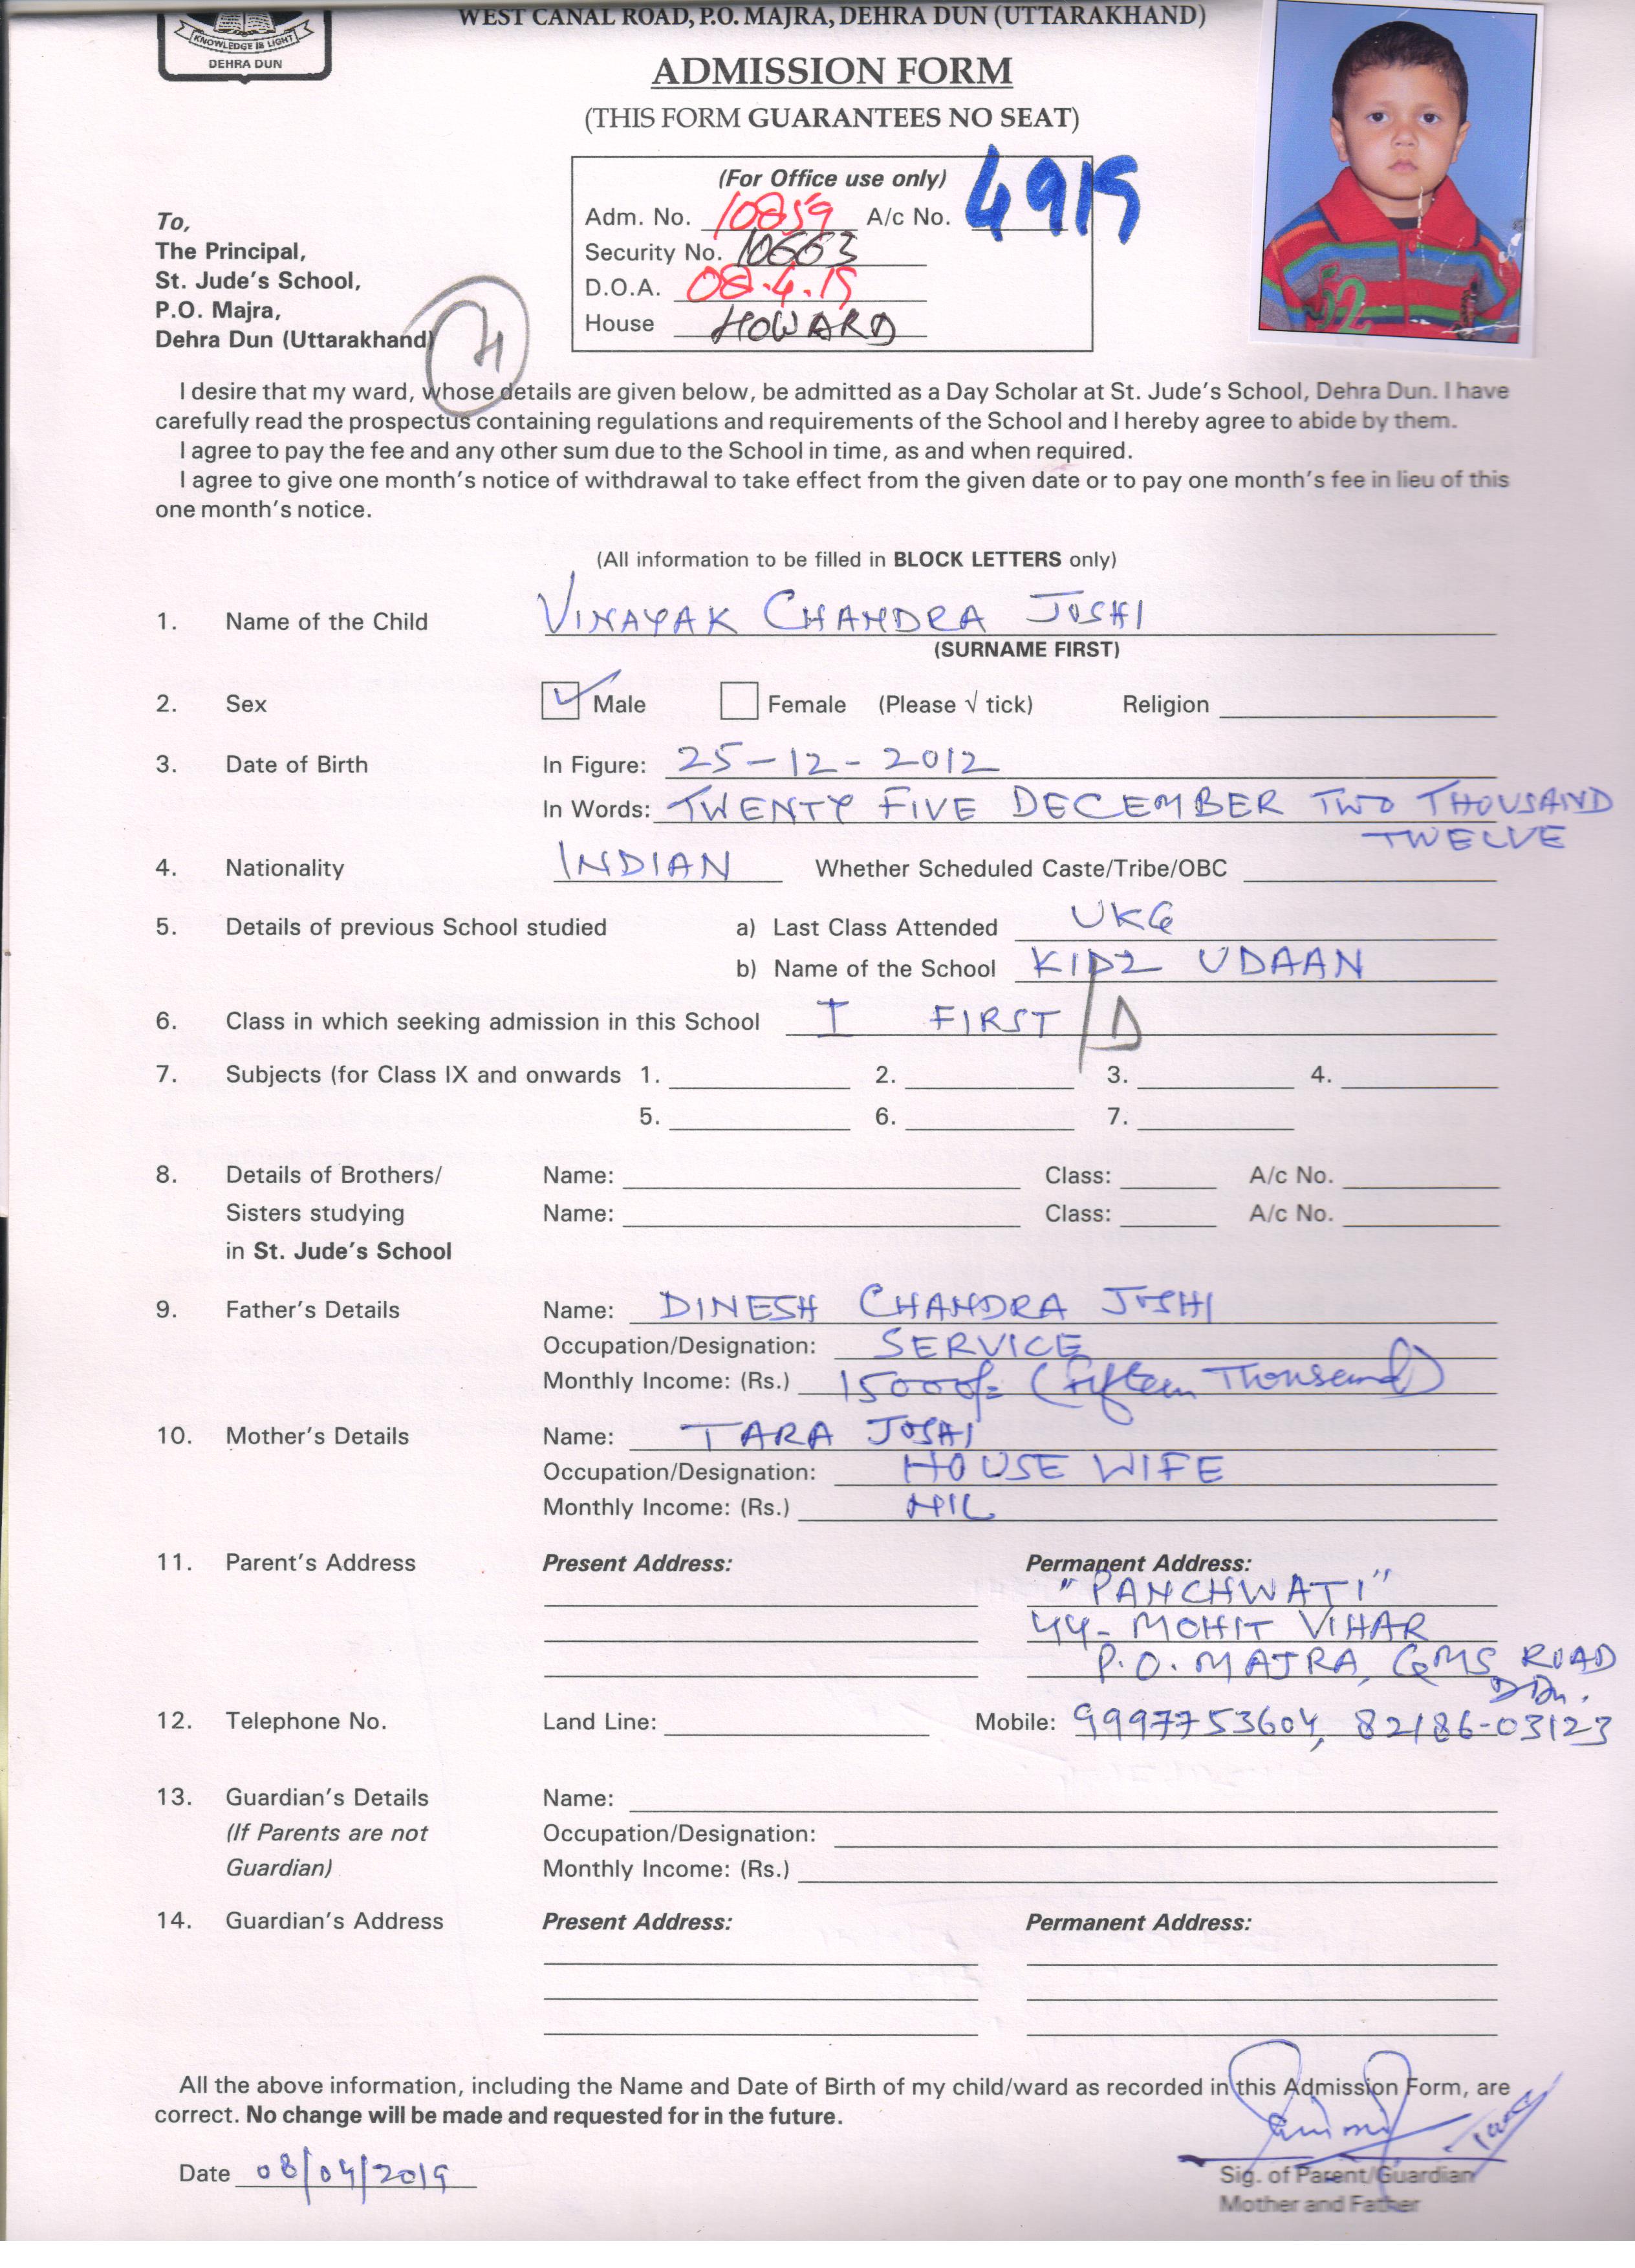 WEST CANAL ROAD, P.O. MAJRA, DEHRA DUN (UTTARAKHAND)
KNOWLEDGE IS LIGHT
DEHRA DUN
ADMISSION FORM
(THIS FORM GUARANTEES NO SEAT)
(For Office use only)
Adm. No. 10859 A/c No. 4919
Security No. 10663
D.O.A. 08.4.19
House HOWARD
To,
The Principal,
St. Jude's School,
P.O. Majra,
Dehra Dun (Uttarakhand)
I desire that my ward, whose details are given below, be admitted as a Day Scholar at St. Jude's School, Dehra Dun. I have
carefully read the prospectus containing regulations and requirements of the School and I hereby agree to abide by them.
I agree to pay the fee and any other sum due to the School in time, as and when required.
I agree to give one month's notice of withdrawal to take effect from the given date or to pay one month's fee in lieu of this
one month's notice.
(All information to be filled in BLOCK LETTERS only)
1. Name of the Child VINAYAK CHANDRA JOSHI
(SURNAME FIRST)
2. Sex ✓ Male Female (Please √ tick) Religion
3. Date of Birth In Figure: 25-12-2012
In Words: TWENTY FIVE DECEMBER TWO THOUSAND
TWELVE
4. Nationality INDIAN Whether Scheduled Caste/Tribe/OBC
5. Details of previous School studied a) Last Class Attended UKG
b) Name of the School KIDZ UDAAN
6. Class in which seeking admission in this School I FIRST / D
7. Subjects (for Class IX and onwards 1. 2. 3. 4.
5. 6. 7.
8. Details of Brothers/ Name: Class: A/c No.
Sisters studying Name: Class: A/c No.
in St. Jude's School
9. Father's Details Name: DINESH CHANDRA JOSHI
Occupation/Designation: SERVICE
Monthly Income: (Rs.) 15000/= (fifteen Thousand)
10. Mother's Details Name: TARA JOSHI
Occupation/Designation: HOUSE WIFE
Monthly Income: (Rs.) NIL
11. Parent's Address Present Address: Permanent Address:
"PANCHWATI"
44- MOHIT VIHAR
P.O. MAJRA, GMS ROAD
DDn.
12. Telephone No. Land Line: Mobile: 9997753604, 82186-03123
13. Guardian's Details Name:
(If Parents are not Occupation/Designation:
Guardian) Monthly Income: (Rs.)
14. Guardian's Address Present Address: Permanent Address:
All the above information, including the Name and Date of Birth of my child/ward as recorded in this Admission Form, are
correct. No change will be made and requested for in the future.
Date 08/04/2019
Sig. of Parent/Guardian
Mother and Father